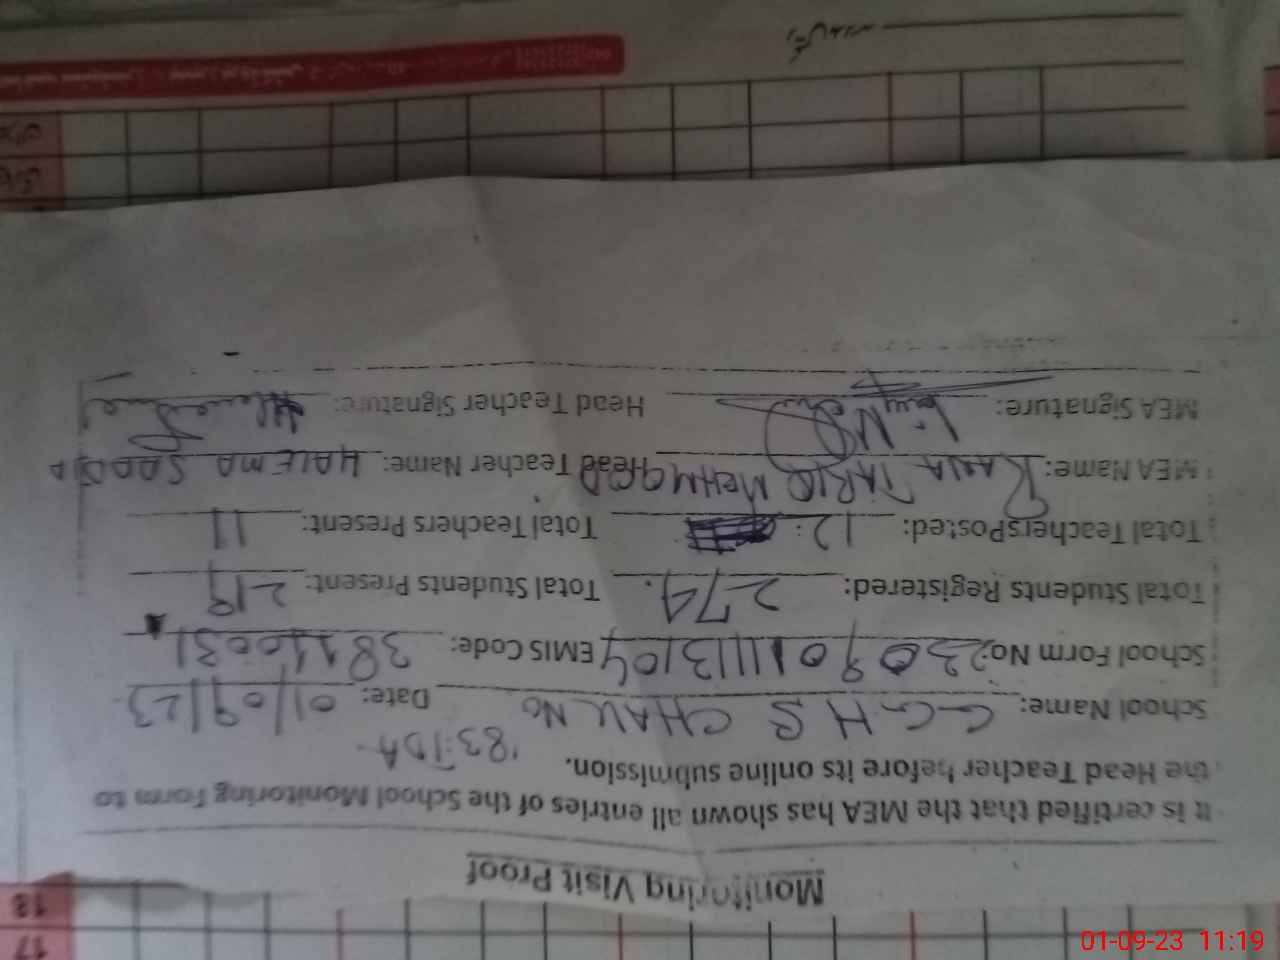 Monitoring Visit Proof
It is certified that the MEA has shown all entries of the School Monitoring Form to
the Head Teacher before its online submission.
School Name: G.G.H.S CHAK No. 83/TDA Date: 01/09/23
School Form No: 2309011113104 EMIS Code: 38110031
Total Students Registered: 274. Total Students Present: 219
Total Teachers Posted: 12 Total Teachers Present: 11
MEA Name: RANA TARIQ MEHMOOD Head Teacher Name: HALEMA SADDIA
MEA Signature: Head Teacher Signature:
17
18
01-09-23 11:19